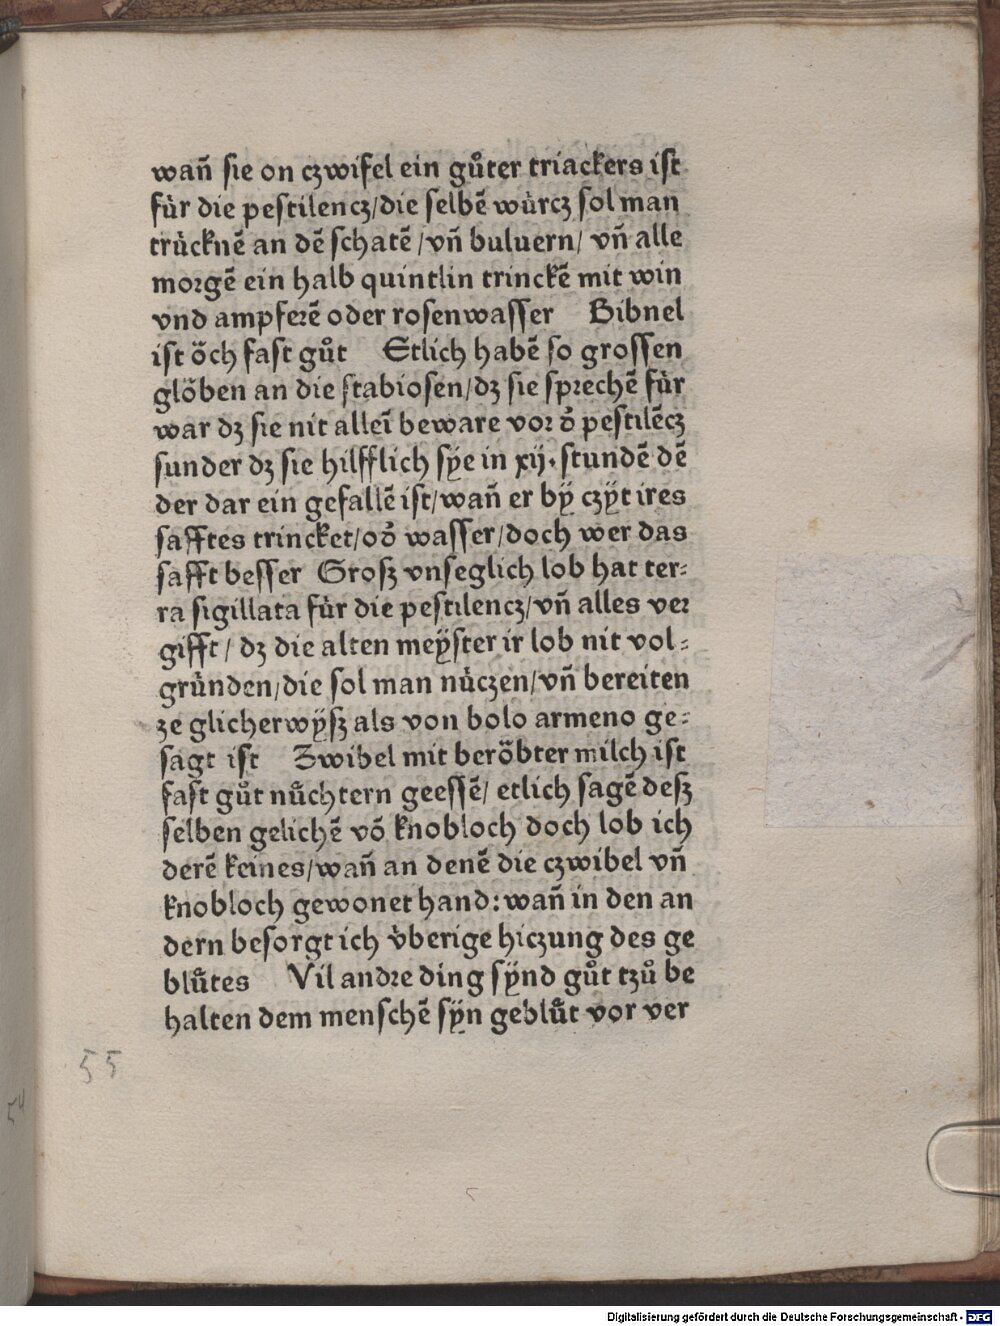 wañ sie on czwifel ein gůter triackers ist
für die pestilencz/die selbẽ wůrcz sol man
trücknẽ an dẽ schatẽ/vñ buluern/ vñ alle
morgẽ ein halb quintlin trinckẽ mit win
vnd ampferẽ oder rosenwasser Bibnel
ist õch fast gůt Etlich habẽ so grossen
glõben an die scabiosen/dz sie sprechẽ für
war dz sie nit alleī beware vor d̓ pestilẽcz
sunder dz sie hilfflich sÿe in xij. stundẽ dẽ
der dar ein gefallẽ ist/wañ er bÿ czÿt ires
safftes trincket/od̓ wasser/doch wer das
safft besser Grosz vnseglich lob hat ter⸗
ra sigillata für die pestilencz/vñ alles ver
gifft/ dz die alten meÿster ir lob nit vol⸗
gründen/die sol man nüczen/vñ bereiten
ze glicherwÿsz als von bolo armeno ge⸗
sagt ist Zwibel mit berõbter milch ist
fast gůt nůchtern geessẽ/ etlich sagẽ desz
selben gelichẽ võ knobloch doch lob ich
derẽ keines/wañ an denẽ die czwibel vñ
knobloch gewonet hand: wañ in den an
dern besorgt ich v̇berige hiczung des ge
blůtes Vil andre ding sÿnd gůt tzů be
halten dem menschẽ sÿn geblůt vor ver
55
54
Digitalisierung gefördert durch die Deutsche Forschungsgemeinschaft - DFG